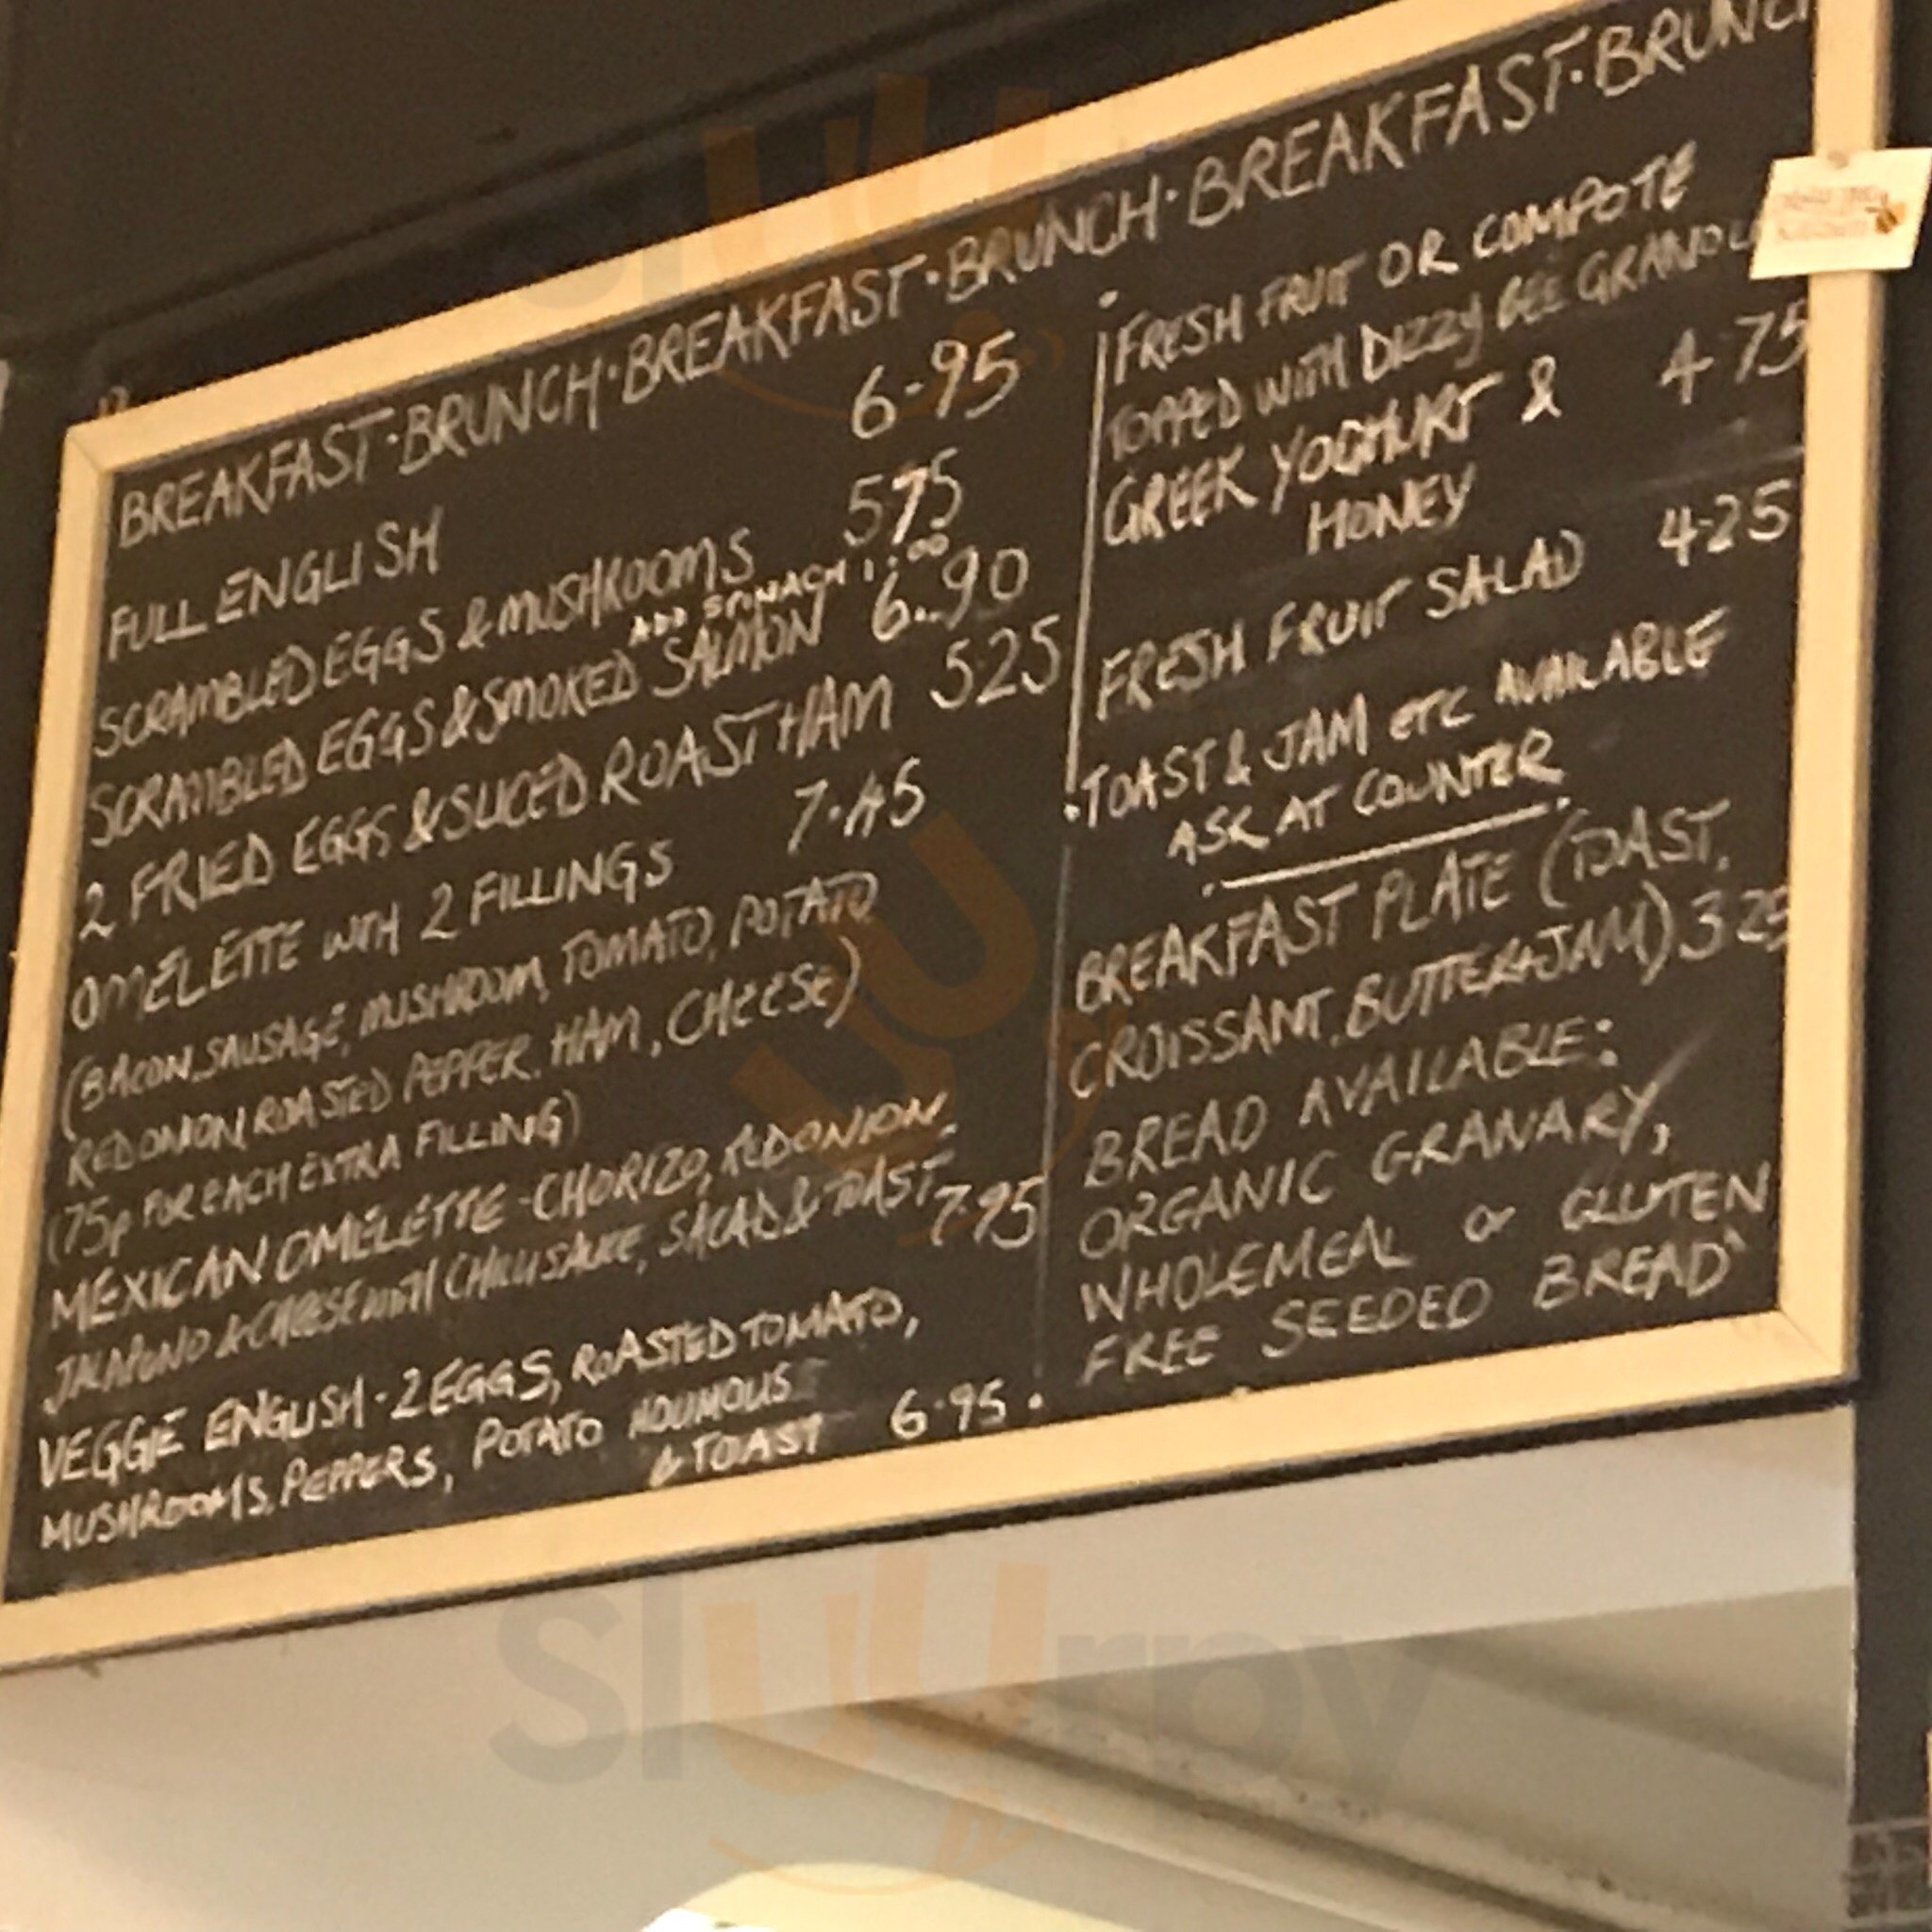 BREAKFAST·BRUNCH·BREAKFAST·BRUNCH·BREAKFAST·BRUNCH
FULL ENGLISH 6-95
SCRAMBLED EGGS & MUSHROOMS 575
ADD SPINACH 1:00
SCRAMBLED EGGS & SMOKED SALMON 6.90
2 FRIED EGGS & SLICED ROAST HAM 525
OMELETTE WITH 2 FILLINGS 7.45
(BACON, SAUSAGE, MUSHROOM, TOMATO, POTATO
RED ONION, ROASTED PEPPER, HAM, CHEESE)
(75p FOR EACH EXTRA FILLING)
MEXICAN OMELETTE - CHORIZO, RED ONION,
JALAPENO & CHEESE WITH CHILLI SAUCE, SALAD & TOAST 7.95
VEGGIE ENGLISH - 2 EGGS, ROASTED TOMATO,
MUSHROOMS, PEPPERS, POTATO HOUMOUS
& TOAST 6.95.
FRESH FRUIT OR COMPOTE
TOPPED WITH DIZZY BEE GRANOLA
GREEK YOGHURT & 4 75
HONEY
FRESH FRUIT SALAD 4-25
·TOAST & JAM ETC AVAILABLE
ASK AT COUNTER
BREAKFAST PLATE (TOAST,
CROISSANT, BUTTER & JAM) 3 25
BREAD AVAILABLE:
ORGANIC GRANARY,
WHOLEMEAL or GLUTEN
FREE SEEDED BREAD
sluurpy